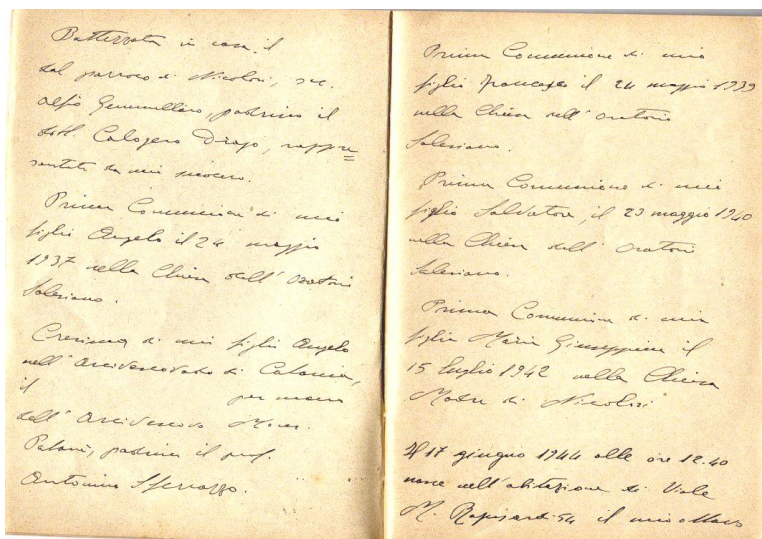 Battezzata in casa il
dal parroco di Nicolosi, sac.
Alfio Gemmellaro, padrino il
dott. Calogero Drago, rappre=
sentato da mio suocero.
Prima Comunione di mio
figlio Angelo il 24 maggio
1937 nella Chiesa dell'Oratorio
Salesiano.
Cresima di mio figlio Angelo
nell'Arcivescovado di Catania,
il per mano
dell'Arcivescovo Mons.
Patanè, padrino il prof.
Antonino Sferrazzo.
Prima Comunione di mio
figlio Francesco il 24 maggio 1939
nella Chiesa dell'Oratorio
Salesiano.
Prima Comunione di mio
figlio Salvatore, il 23 maggio 1940
nella Chiesa dell'Oratorio
Salesiano.
Prima Comunione di mia
figlia Maria Giuseppina il
15 luglio 1942 nella Chiesa
Madre di Nicolosi
Il 17 giugno 1944 alle ore 12.40
nasce nell'abitazione di Viale
M. Rapisardi 54 il mio ottavo